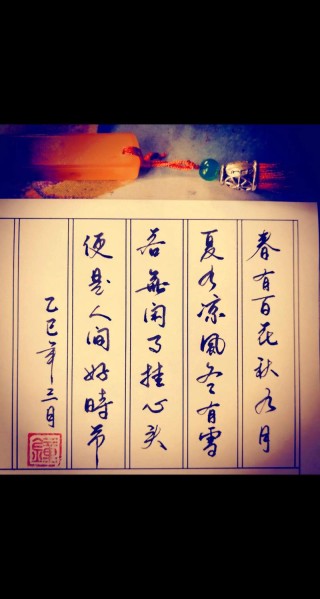 春有百花秋有月
夏有凉風冬有雪
若無闲事挂心头
便是人间好時节
乙巳年三月